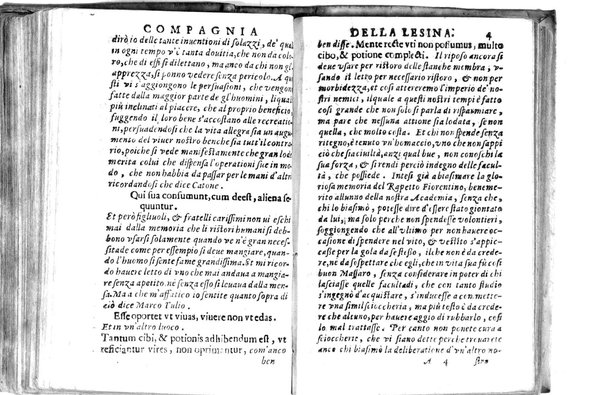 COMPAGNIA
dirò io delle tante inuentioni di solazzi, de' quali
in ogni tempo v'è tanta douitia, che non da colo-
ro, che di essi si dilettano, ma anco da chi non gli
apprezza, si ponno vedere senza pericolo. A que
sti vi s'aggiungono le persuasioni, che vengono
fatte dalla maggior parte de gl'huomini, liquali
più inclinati al piacere, che al proprio beneficio,
fuggendo il loro bene s'accostano alle recreatio
ni, persuadendosi che la vita allegra sia un aug-
mento del viuer nostro benche sia tutt'il contra-
rio, perche si vede manifestamente che gran lode
merita colui che dispensa l'operationi sue in mo-
do, che non habbia da passar per le mani d'altri
ricordandosi che dice Catone.
Qui sua consumunt, cum deest, aliena se
quuntur.
Et però figliuoli, & fratelli carissimi non ui eschi
mai dalla memoria che li ristori humani si deb-
bono vsarsi solamente quando ve n'è gran neces-
sità de come per essempio si deue mangiare, quan
do l'huomo si sente fame grandissima. Et mi ricor
do hauere letto di vno che mai andaua a mangia-
re senza apetito, ne satio d'esso si leuaua dalla men
sa. Ma a che m'affatico io sentite quanto sopra di
ciò dice Marco Tulio.
Esse oportet vt viuas, viuere non vt edas.
Et in vn'altro luoco.
Tantum cibi, & potionis adhibendum est, vt
reficiantur vires, non opprimantur, com'anco
ben
DELLA LESINA. 4
ben disse. Mente recte vti non possumus, multo
cibo, & potione complecti. Il riposo ancora si
deue vsare per ristoro delle stanche membra, v-
sando il letto per necessario ristoro, & non per
morbidezza, et così atterreremo l'imperio de' no-
stri nemici, il quale a questi nostri tempi è fatto
così grande che non solo si parla di risparmiare,
ma pare che nessuna attione sia lodata, se non
quella, che molto costa. Et chi non spende senza
ritegno, è tenuto vn'homaccio, vno che non sappi
ciò che sia ciuiltà, anzi qual bue, non conoschi la
sua forza, & si rendi perciò indegno delle facul-
tà, che possiede. Intesi già a biasimare la glo-
riosa memoria del Rapetto Fiorentino, beneme-
rito allunno della nostra Academia, senza che,
chi lo biasimò, potesse dire d'essere stato giontato
da lui, ma solo perche non spendesse volontieri,
soggiongendo che all'vltimo per non hauere oc-
casione di spendere nel vito, & vestito s'appic-
casse per la gola da se stesso, il che non è da crede-
re, ne da sospettare che egli, che in vita sua fù così
buon Massaro, senza considerare in poter di chi
lasciasse quelle facultadi, che con tanto studio
s'ingegnò d'acquistare, s'inducesse a con mette-
re vna simil sciochezza, ma più tosto è da crede-
re che alcuno, per hauere aggio di rubbarlo, cosi
lo mal trattasse. Per canto non ponete cura a
sciocchezze, che vi siano dette perche trouarete
anco chi biasimò la deliberatione d'vn'altro no-
A 4 stro